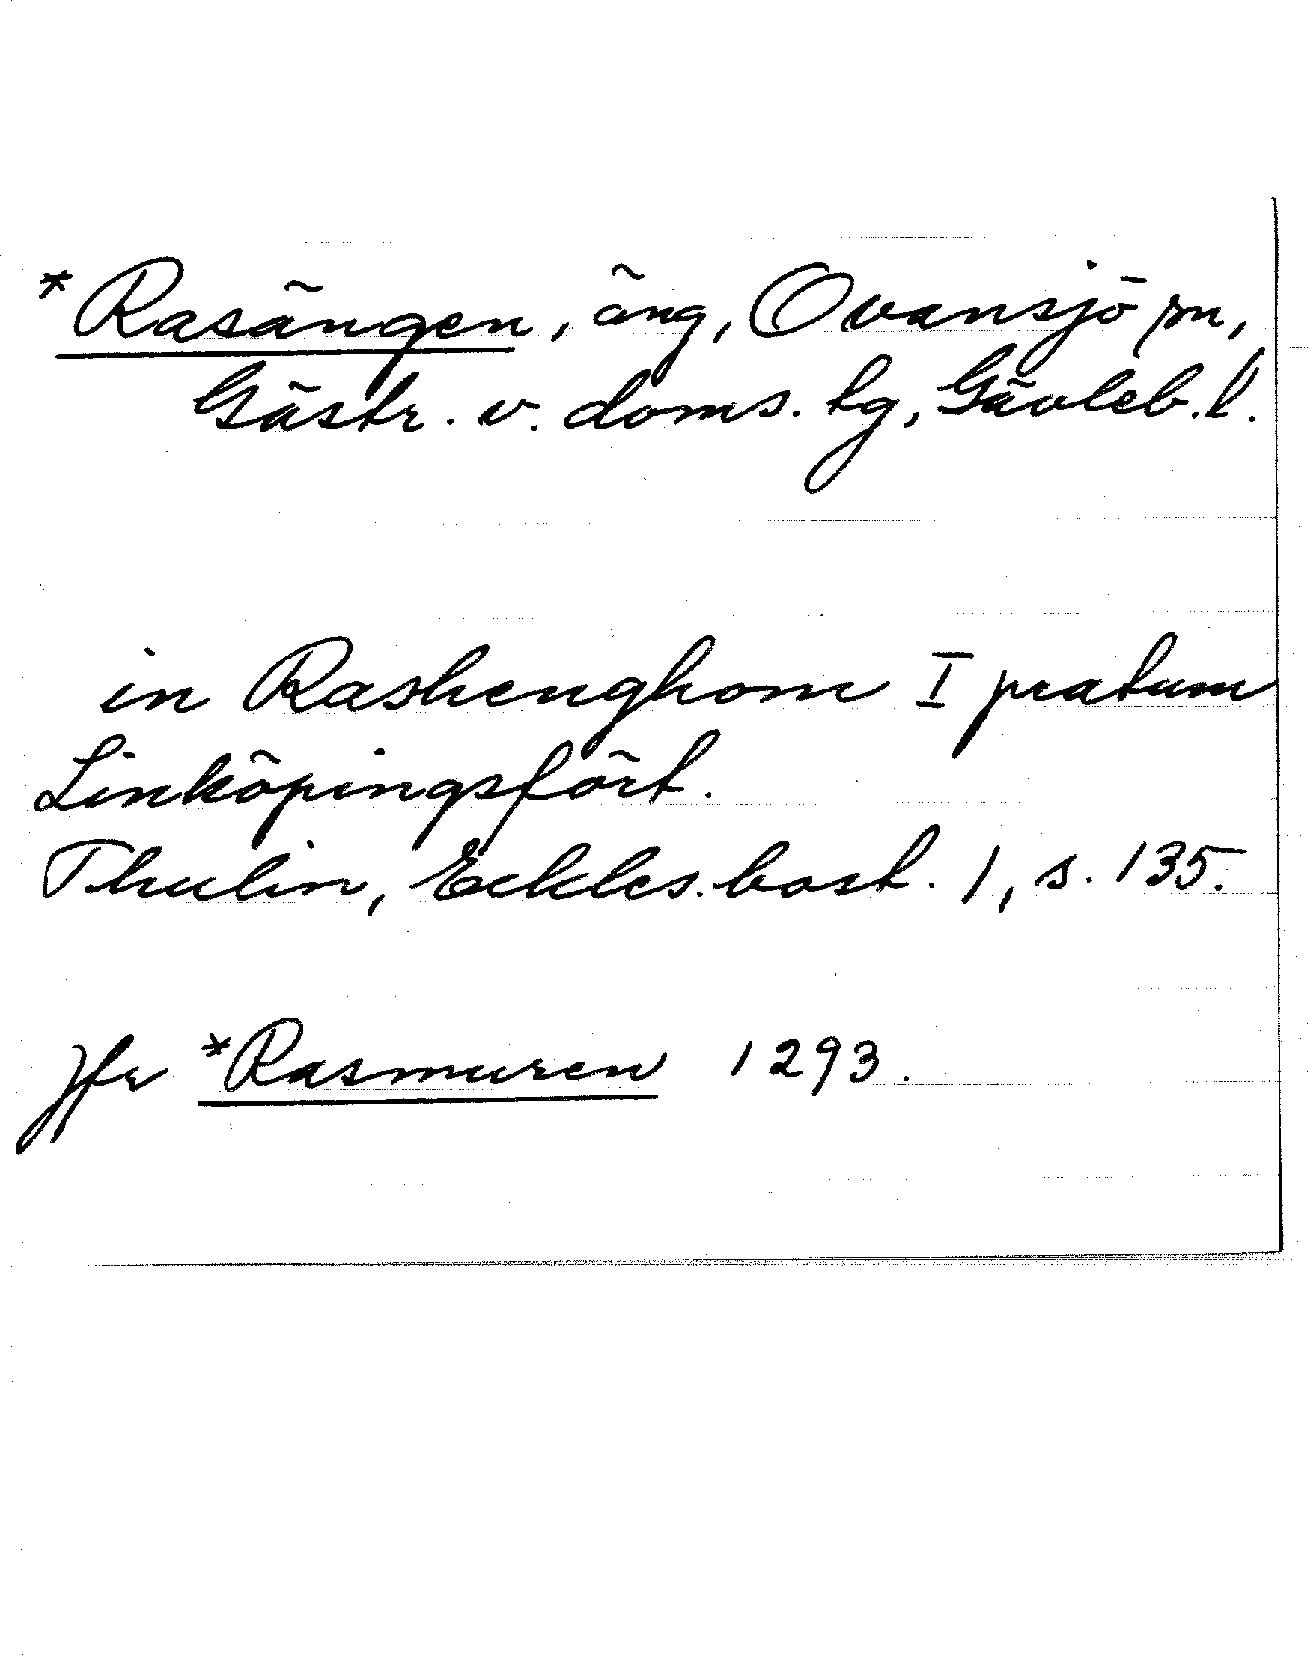 *Rasängen, äng, Ovansjö sn,
Gästr. v. doms. tg, Gävleb. l.
in Rashenghom I pratum
Linköpingsfört.
Thulin, Eckles. bost. 1, s. 135.
Jfr *Rasmuren 1293.